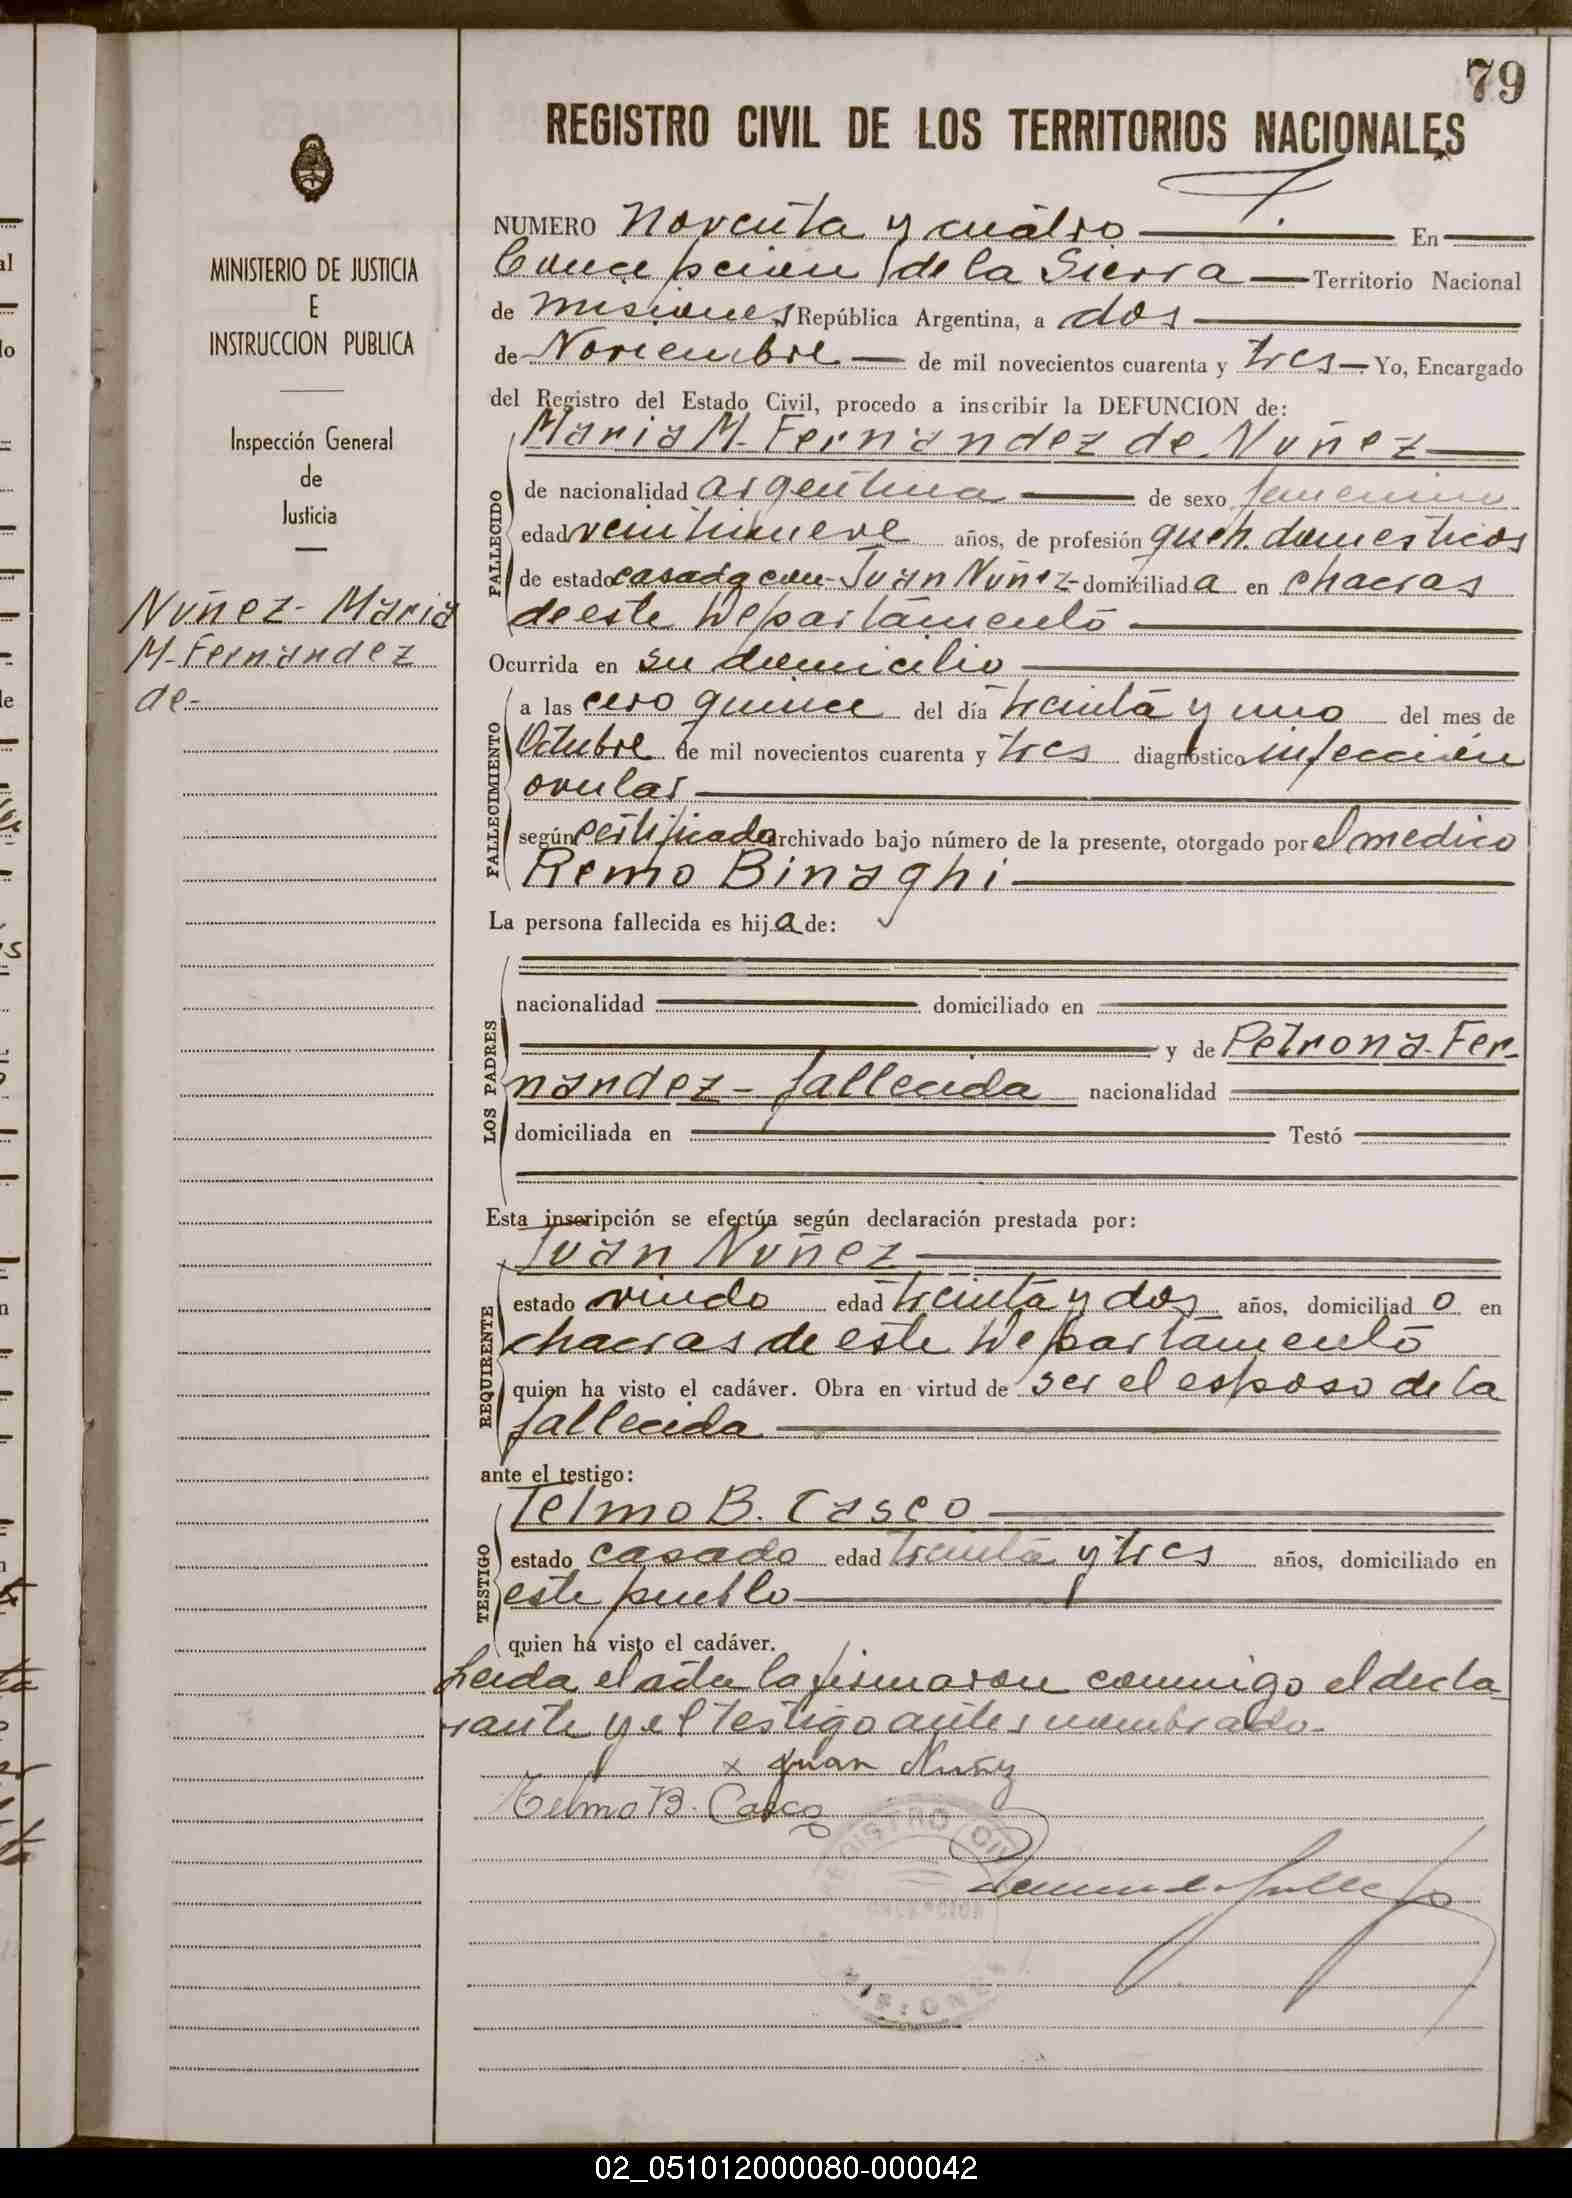 79
REGISTRO CIVIL DE LOS TERRITORIOS NACIONALES
MINISTERIO DE JUSTICIA
E
INSTRUCCION PUBLICA
Inspección General
de
Justicia
Nuñez - Maria
M. Fernandez
de-
NUMERO Noventa y cuatro En
Concepcion de la Sierra Territorio Nacional
de Misiones República Argentina, a dos
de Noviembre de mil novecientos cuarenta y tres Yo, Encargado
del Registro del Estado Civil, procedo a inscribir la DEFUNCION de:
Maria M. Fernandez de Nuñez
FALLECIDO
de nacionalidad argentina de sexo femenino
edad veintinueve años, de profesión queh. domesticos
de estado casada con Juan Nuñez domiciliada en chacras
de este Departamento
Ocurrida en su domicilio
FALLECIMIENTO
a las cero quince del día treinta y uno del mes de
Octubre de mil novecientos cuarenta y tres diagnóstico infección
ovular
según certificado archivado bajo número de la presente, otorgado por el medico
Remo Binaghi
La persona fallecida es hija de:
LOS PADRES
nacionalidad domiciliado en
y de Petrona Fer-
nandez - fallecida nacionalidad
domiciliada en Testó
Esta inscripción se efectúa según declaración prestada por:
Juan Nuñez
REQUIRENTE
estado viudo edad treinta y dos años, domiciliado en
chacras de este Departamento
quien ha visto el cadáver. Obra en virtud de ser el esposo de la
fallecida
ante el testigo:
Telmo B. Casco
TESTIGO
estado casado edad treinta y tres años, domiciliado en
este pueblo
quien ha visto el cadáver.
Leida el acta la firmaron conmigo el decla-
rante y el testigo antes nombrado.-
x Juan Nuñez
Telmo B. Casco
REGISTRO CIVIL
CONCEPCION
MISIONES
02_051012000080-000042